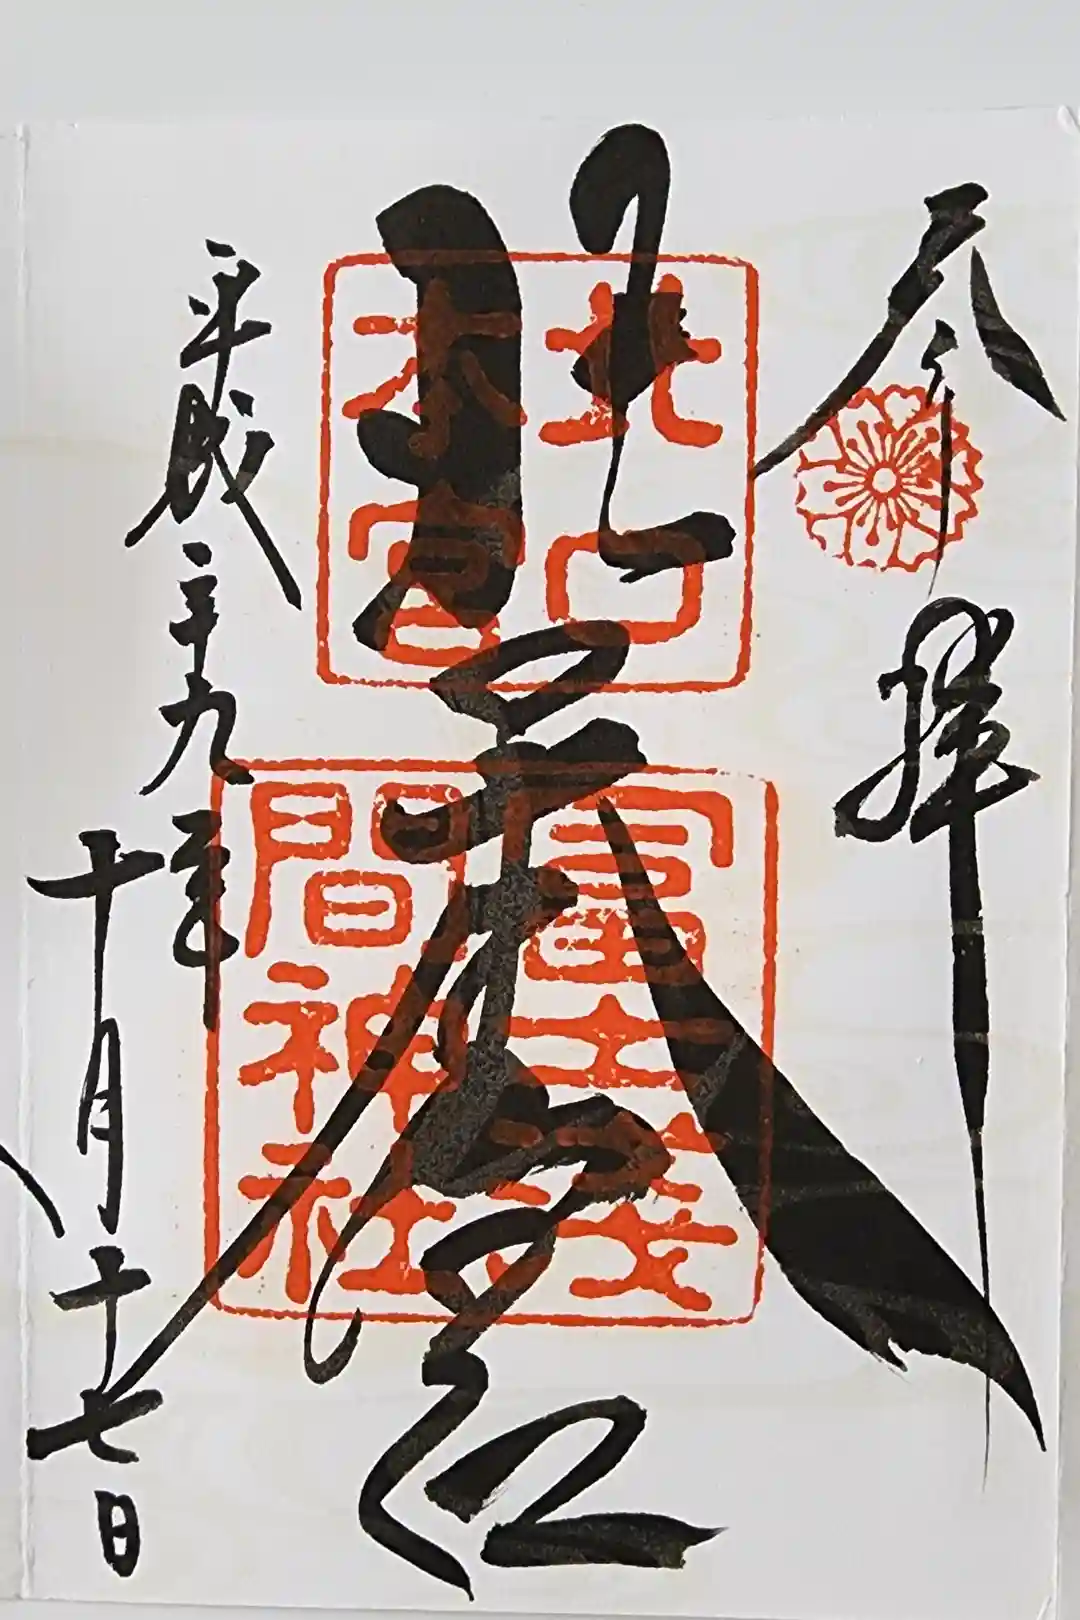 奉拝
北口本宮
北口
本宮
冨士浅
間神社
平成二十九年
十月十七日